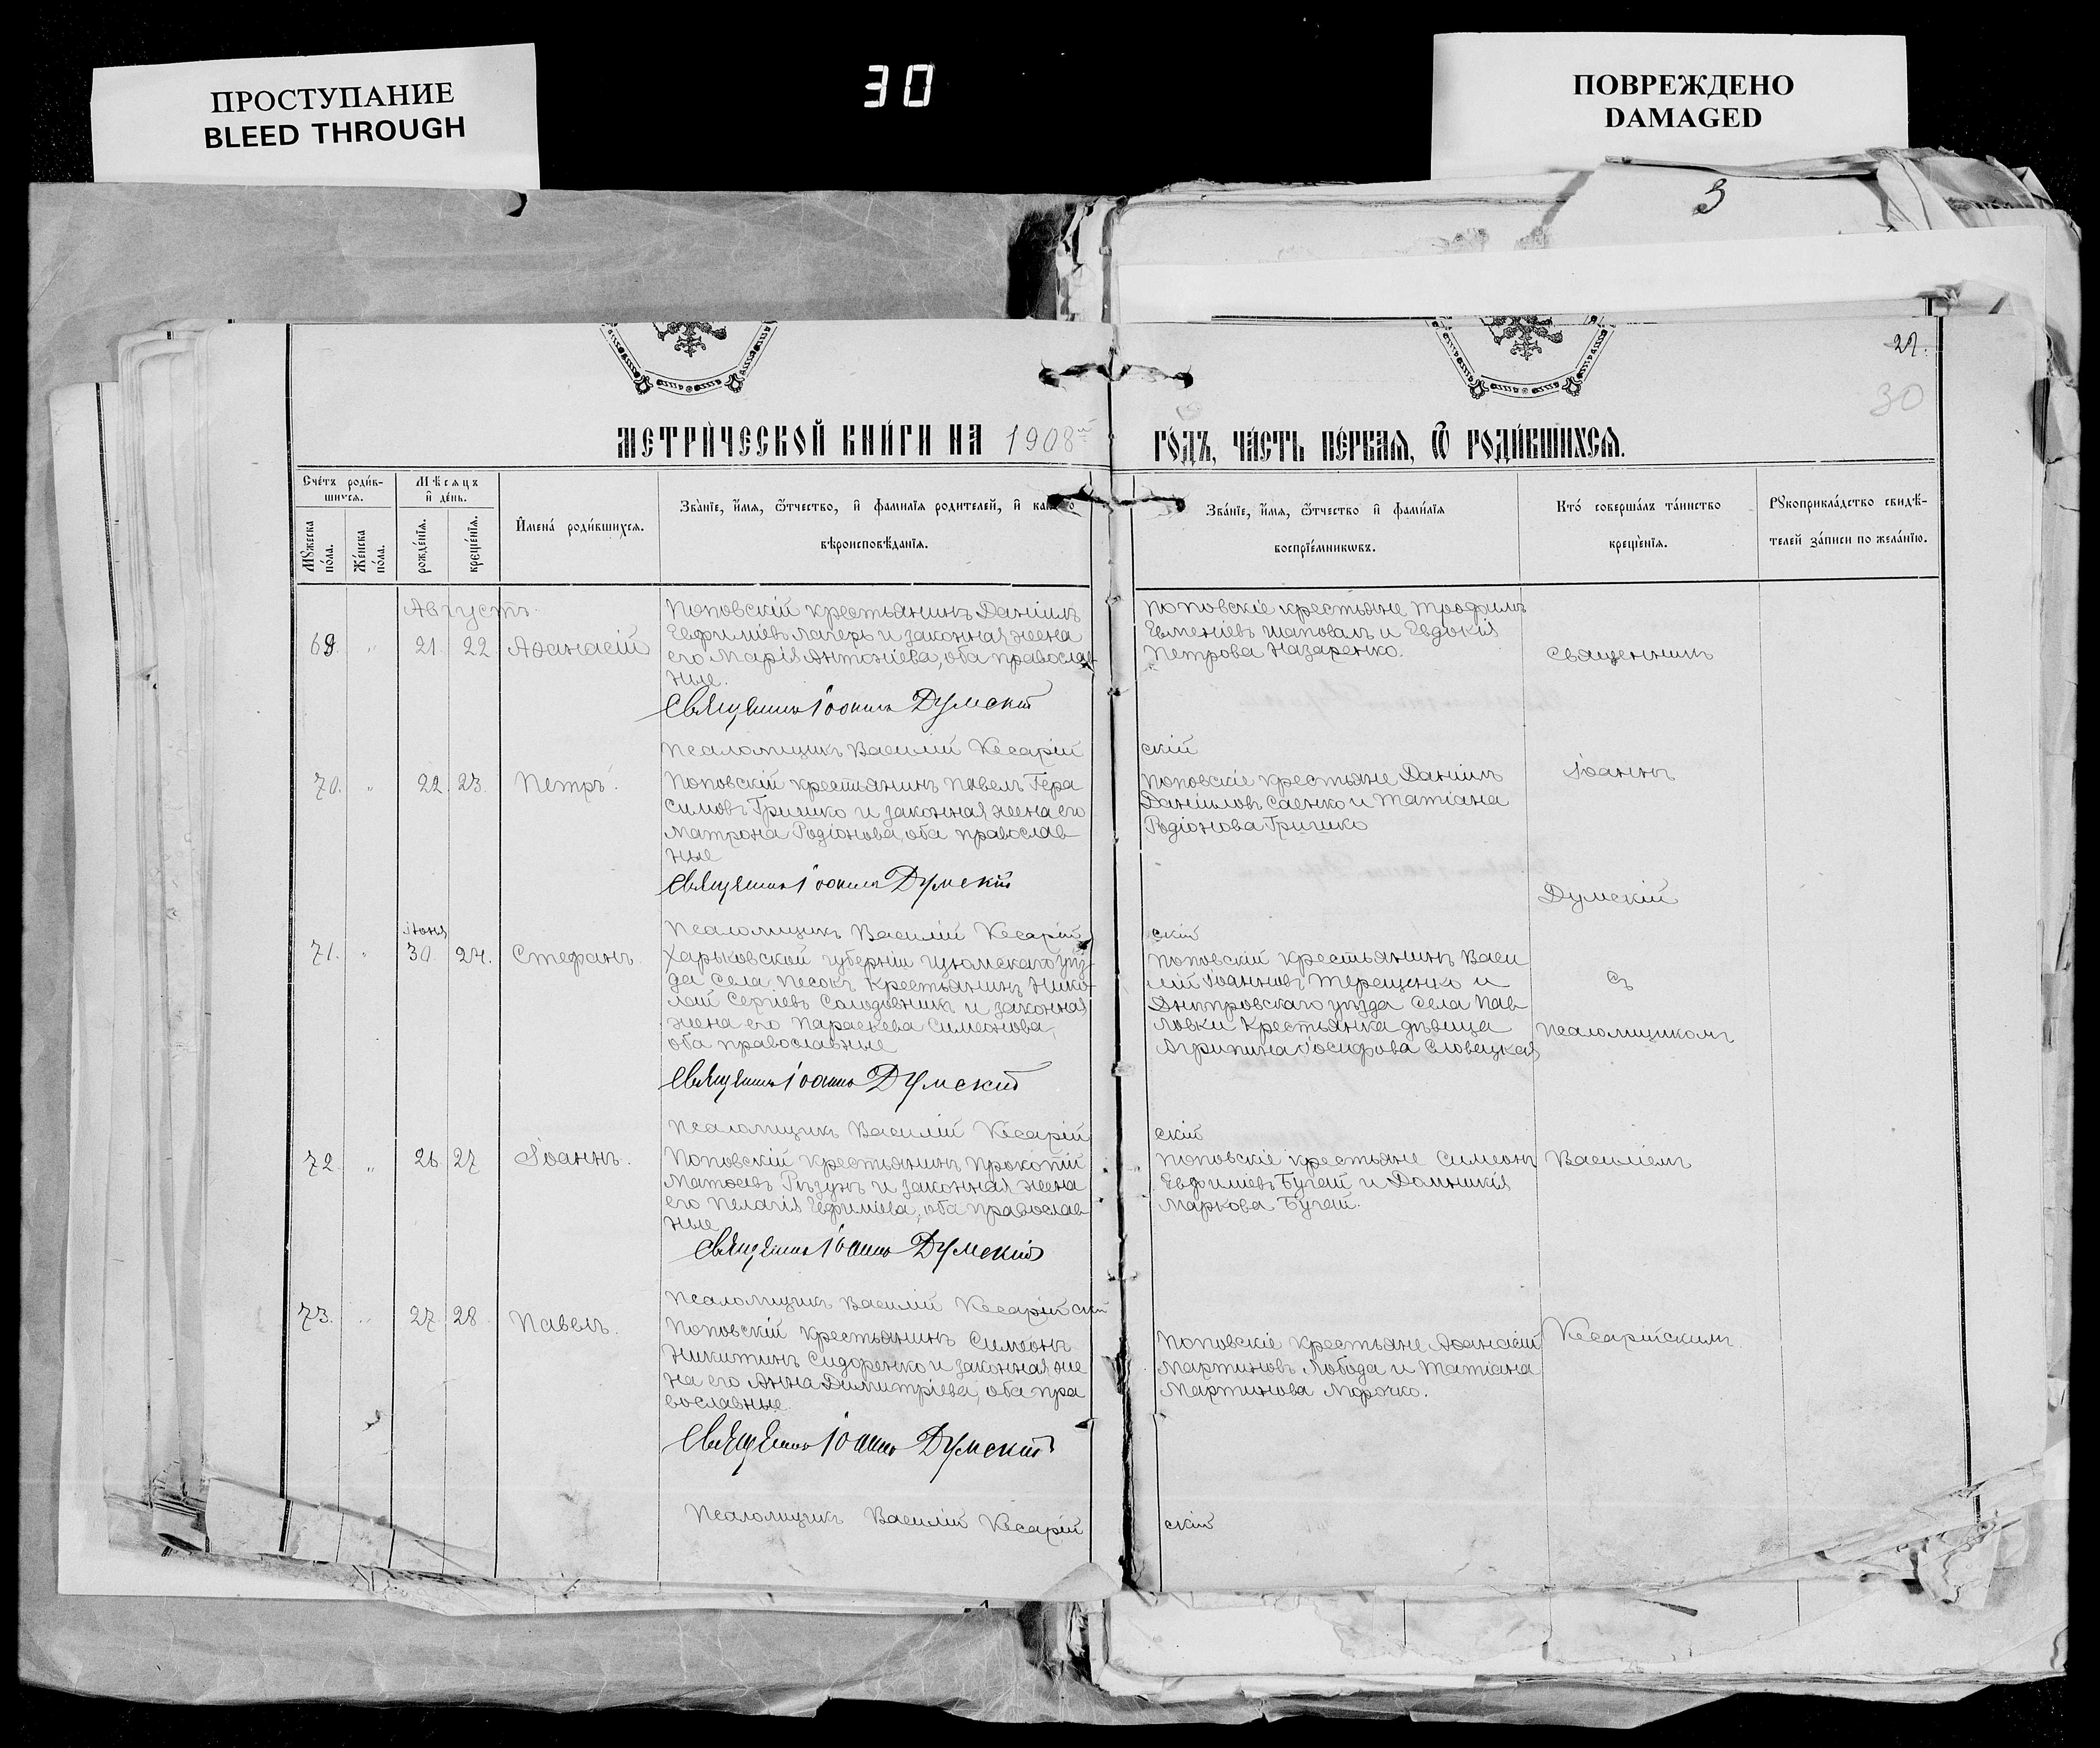 ПРОСТУПАНИЕ
BLEED THROUGH
30
ПОВРЕЖДЕНО
DAMAGED
3
29.
30
МЕТРИ́ЧЕСКОЙ КНИ́ГИ НА 1908й
ГО́ДЪ, ЧА́СТЬ ПЕ́РВАЯ, Ѡ҆ РОДИ́ВШИХСЯ.
Сче́тъ роди́в-
шихся.
Мѣсяцъ
и҆ де́нь.
Му́жеска по́ла.
Же́нска по́ла.
рожде́нїя.
креще́нїя.
И҆мена́ роди́вшихся.
Зва́нїе, и҆́мя, ѻ҆́тчество, и҆ фамилїя родителей, и҆
вѣроисповѣ́данїя.
Зва́нїе, и҆́мя, ѻ҆́тчество и҆ фами́лїя
воспрїе́мникѡвъ.
Кто́ соверша́лъ та́инство
креще́нїя.
Рукоприкла́дство свидѣ́-
телей за́писи по жела́нїю.
Августъ.
69. " 21. 22 Аѳанасій
Поповскій крестьянинъ Даніилъ
Евфиміевъ Лагерь и законная жена
его Марія Антоніева, оба православ-
ные.
Священникъ Іоаннъ Думскій
Псаломщикъ Василій Кесарій
скій
Поповскіе крестьяне Трофимъ
Евменіевъ Шаповалъ и Евдокія
Петрова Назаренко.
Священникъ
70. " 22 23. Петръ.
Поповскій крестьянинъ Павелъ Гера
симовъ Гришко и законная жена его
Матрона Родіонова, оба православ-
ные
Священникъ Іоаннъ Думскій
Псаломщикъ Василій Кесарій
скій
Поповскіе крестьяне Даніилъ
Данииловъ Саенко и Татіана
Родіонова Гришко
Іоаннъ
Думскій
Іюня
71. " 30. 24. Стефанъ.
Харьковской губерніи Изюмскаго уѣз-
да села Песокъ крестьянинъ Нико-
лай Сергіевъ Солодовникъ и законная
жена его Параскева Симеонова,
оба православные
Священникъ Іоаннъ Думскій
Псаломщикъ Василій Кесарій
скій
Поповскій крестьянинъ Васи
лій Іоанновъ Терещенко и
Днѣпровскаго уѣзда села Пав-
ловки крестьянка дѣвица
Агрипина Іосифова Словецкая
съ
псаломщикомъ
72. " 26 27 Іоаннъ.
Поповскій крестьянинъ Прокопій
Матѳеевъ Рѣзунъ и законная жена
его Пелагія Евфиміева, оба православ-
ные
Священникъ Іоаннъ Думскій
Псаломщикъ Василій Кесарійскій
Поповскіе крестьяне Симеонъ
Евфиміевъ Бугай и Домникія
Маркова Бугай.
Василіемъ
73. " 27. 28. Павелъ.
Поповскій крестьянинъ Симеонъ
Никитинъ Сидоренко и законная же
на его Анна Димитріева, оба пра
вославные.
Священникъ Іоаннъ Думскій
Псаломщикъ Василій Кесарій
скій
Поповскіе крестьяне Аѳанасій
Мартиновъ Лобода и Татіана
Мартинова Морочко.
Кесарійскимъ